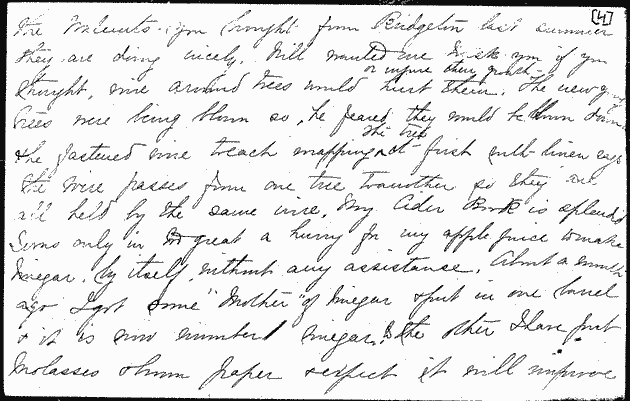 [4]
the Walnuts you brought from Bridgeton last summer
they are doing nicely. Will wanted me to ask you if you
or injure their growth
thought, wire around trees would hurt them. The new
trees were being blown so, he feared they would be blown down
the tree
He fastened wire to each wrapping at first with linen rags
the wire passes from one tree to another so they are
all held by the same wire. My Cider Book is splendid
I was only in too great a hurry for my apple juice to make
Vinegar, by itself, without any assistance. About a month
ago I got some "Mother" of Vinegar & put in one barrel
& it is now number 1 vinegar, & the other I have put
Molasses & brown paper & expect it will improve